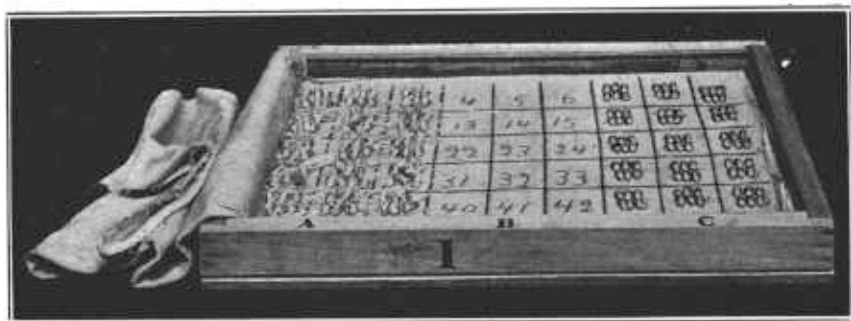 4 5 6
13 14 15
22 23 24
31 32 33
40 41 42
A B C
1